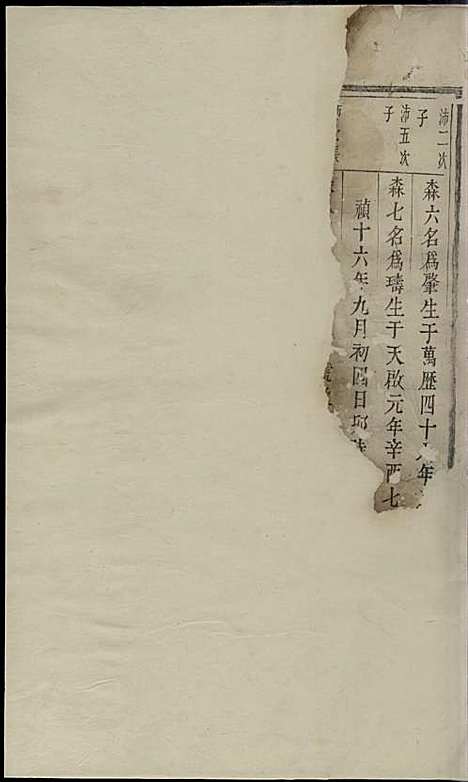 沛二次
子
森六名爲肇生于萬歷四十八年
沛五次
子
森七名爲璹生于天啟元年辛酉七
禎十六年九月初四日